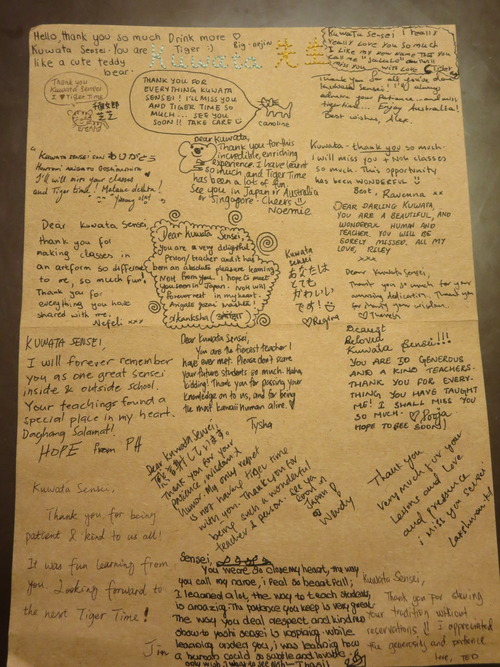 Hello, thank you so much
Kuwata Sensei. You are
like a cute teddy
bear.
Drink more ♡
Tiger :)
Big-oejin
Kuwata 先生
Kuwata Sensei I really
really love you so much
I like my
miss you
Thank you
Kuwata Sensei
I ♡ Tiger Time
THANK YOU FOR
EVERYTHING KUWATA
SENSEI! I'LL MISS YOU
AND TIGER TIME SO
MUCH... SEE YOU
SOON!! TAKE CARE
caroline
Thank you for all you've done
Kuwata Sensei! I'll always
your patience and
tiger time... Enjoy Australia!
Best wishes, Alex.
Kuwata Sensei
I'll miss your classes
and Tiger time!
Dear Kuwata,
Thank you for this
incredible, enriching
experience. I have learnt
so much and Tiger Time
has been a lot of fun.
See you in Japan or Australia
or Singapore. Cheers
Noemie
Kuwata - thank you so much.
I will miss you + Noh classes
so much. This opportunity
has been WONDERFUL
Best, Ravenna xx
DEAR DARLING KUWATA,
YOU ARE A BEAUTIFUL, AND
WONDERFUL HUMAN AND
TEACHER. YOU WILL BE
SORELY MISSED. ALL MY
LOVE, RILEY
xxx
Dear Kuwata Sensei,
thank you for
making classes in
an artform so different
to me, so much fun!
Thank you for
everything you have
shared with me.
Nefeli xxx
Dear Kuwata Sensei
you are a very delightful
person/teacher and it had
been an absolute pleasure learning
NOH from you. I hope to meet
you soon in Japan. NOH will
forever rest in my heart.
Akanksha
Kuwata
sensei
あなたは
とても
かわいい
です!
♡Regina
Dear Kuwata Sensei,
Thank you so much for your
amazing dedication. Thank you
for sharing your wisdom.
♡ Theresa
KUWATA SENSEI,
I will forever remember
you as one great sensei
inside & outside school.
Your teachings found a
special place in my heart.
Salamat!
HOPE from PH
Dear Kuwata Sensei,
You are the fiercest teacher I
have ever met. Please don't scare
your future students so much. Haha,
kidding! Thank you for passing your
knowledge on to us, and for being
the most kawaii human alive. ♡
Tysha
Dearest
Beloved
Kuwata Sensei!!!
YOU ARE SO GENEROUS
AND A KIND TEACHER.
THANK YOU FOR EVERY-
THING YOU HAVE TAUGHT
ME! I SHALL MISS YOU
SO MUCH. ♡ Pooja
HOPE TO SEE SOON!
Dear Kuwata Sensei,
Thank you for your
patience, wisdom &
humor. My only regret
is not having tiger time
with you. Thank you for
being such a wonderful
teacher & person. See you
soon in
Japan
Wendy
Thank you
very much for your
lessons and love
and presence
i miss you sensei
Kuwata Sensei,
Thank you for being
patient & kind to us all!
It was fun learning from
you. Looking forward to
the next Tiger Time!
Jin
Sensei,
You were so close my heart, the way
you call my name, i feel so beautifull,
I learned a lot, the way to teach students,
is amazing. The patience you keep is very great
The way you deal respect and kindness
show to yoshi sensei is inspiring while
learning around you, i was learning how
a human could b subtle and lovable.
only wish i want to see with
Kuwata Sensei,
Thank you for sharing
your tradition without
reservations!! I appreciated
the generosity and patience